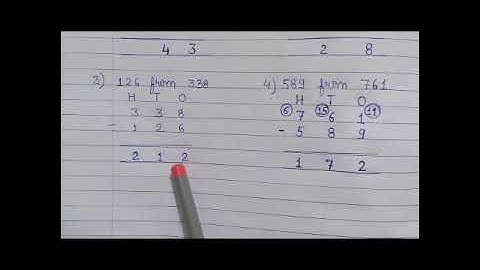 4 3
2 8
3) 126 from 338
H T O
3 3 8
- 1 2 6
2 1 2
4) 589 from 761
H T O
6 15 11
7 6 1
- 5 8 9
1 7 2